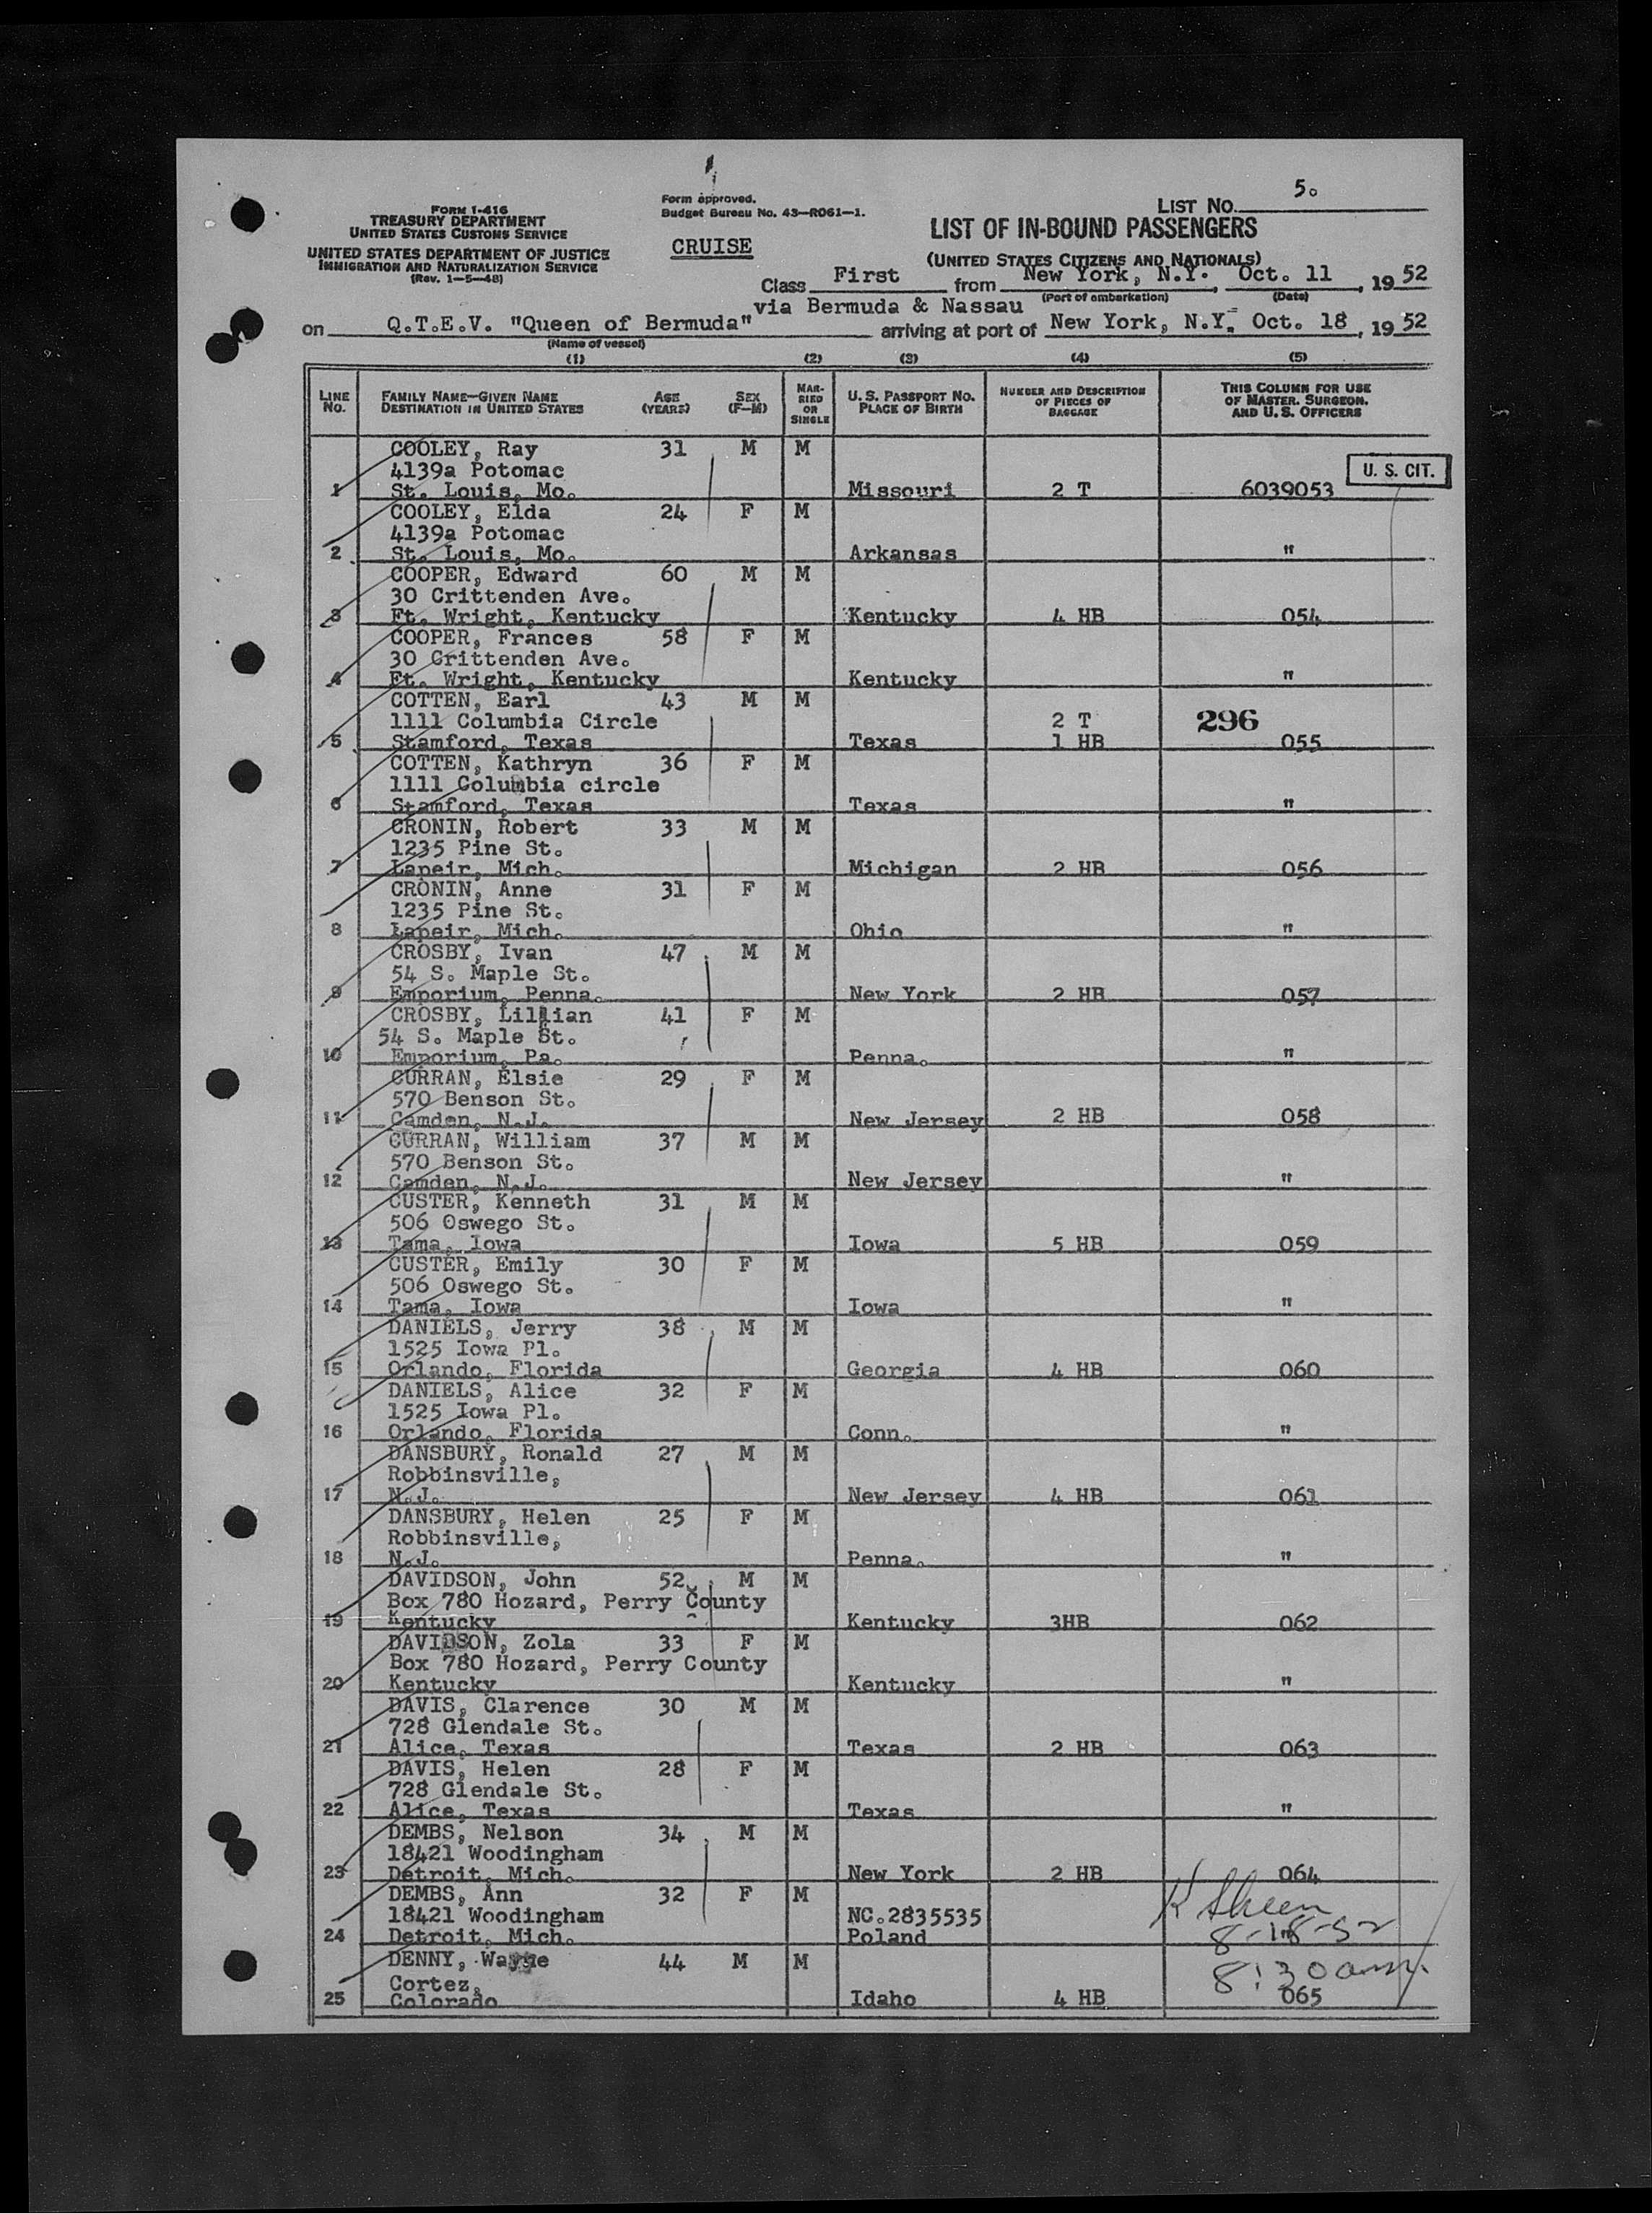 5.
LIST NO.
FORM I-416
TREASURY DEPARTMENT
UNITED STATES CUSTOMS SERVICE
UNITED STATES DEPARTMENT OF JUSTICE
IMMIGRATION AND NATURALIZATION SERVICE
(Rev. 1-5-48)
Form approved.
Budget Bureau No. 43-R061-1.
CRUISE
LIST OF IN-BOUND PASSENGERS
(UNITED STATES CITIZENS AND NATIONALS)
Class First from New York, N.Y., Oct. 11, 1952
(Port of embarkation) (Date)
via Bermuda & Nassau
on Q.T.E.V. "Queen of Bermuda" arriving at port of New York, N.Y. Oct. 18, 1952
(Name of vessel)
(1) (2) (3) (4) (5)
LINE No. FAMILY NAME—GIVEN NAME DESTINATION IN UNITED STATES AGE (YEARS) SEX (F-M) MARRIED OR SINGLE U. S. PASSPORT NO. PLACE OF BIRTH NUMBER AND DESCRIPTION OF PIECES OF BAGGAGE THIS COLUMN FOR USE OF MASTER, SURGEON, AND U. S. OFFICERS
COOLEY, Ray 31 M M
4139a Potomac U. S. CIT.
1 St. Louis, Mo. Missouri 2 T 6039053
COOLEY, Elda 24 F M
4139a Potomac
2 St. Louis, Mo. Arkansas "
COOPER, Edward 60 M M
30 Crittenden Ave.
3 Ft. Wright, Kentucky Kentucky 4 HB 054
COOPER, Frances 58 F M
30 Crittenden Ave.
4 Ft. Wright, Kentucky Kentucky "
COTTEN, Earl 43 M M
1111 Columbia Circle 2 T 296
5 Stamford, Texas Texas 1 HB 055
COTTEN, Kathryn 36 F M
1111 Columbia circle
6 Stamford, Texas Texas "
CRONIN, Robert 33 M M
1235 Pine St.
7 Lapeir, Mich. Michigan 2 HB 056
CRONIN, Anne 31 F M
1235 Pine St.
8 Lapeir, Mich. Ohio "
CROSBY, Ivan 47 M M
54 S. Maple St.
9 Emporium, Penna. New York 2 HB 057
CROSBY, Lillian 41 F M
54 S. Maple St.
10 Emporium, Pa. Penna. "
CURRAN, Elsie 29 F M
570 Benson St.
11 Camden, N.J. New Jersey 2 HB 058
CURRAN, William 37 M M
570 Benson St.
12 Camden, N.J. New Jersey "
CUSTER, Kenneth 31 M M
506 Oswego St.
13 Tama, Iowa Iowa 5 HB 059
CUSTER, Emily 30 F M
506 Oswego St.
14 Tama, Iowa Iowa "
DANIELS, Jerry 38 M M
1525 Iowa Pl.
15 Orlando, Florida Georgia 4 HB 060
DANIELS, Alice 32 F M
1525 Iowa Pl.
16 Orlando, Florida Conn. "
DANSBURY, Ronald 27 M M
Robbinsville,
17 N.J. New Jersey 4 HB 061
DANSBURY, Helen 25 F M
Robbinsville,
18 N.J. Penna. "
DAVIDSON, John 52 M M
Box 780 Hozard, Perry County
19 Kentucky Kentucky 3HB 062
DAVIDSON, Zola 33 F M
Box 780 Hozard, Perry County
20 Kentucky Kentucky "
DAVIS, Clarence 30 M M
728 Glendale St.
21 Alice, Texas Texas 2 HB 063
DAVIS, Helen 28 F M
728 Glendale St.
22 Alice, Texas Texas "
DEMBS, Nelson 34 M M
18421 Woodingham
23 Detroit, Mich. New York 2 HB 064
DEMBS, Ann 32 F M
18421 Woodingham NC.2835535
24 Detroit, Mich. Poland 8-18-52
DENNY, Wayne 44 M M 8:30 am.
Cortez,
25 Colorado Idaho 4 HB 065